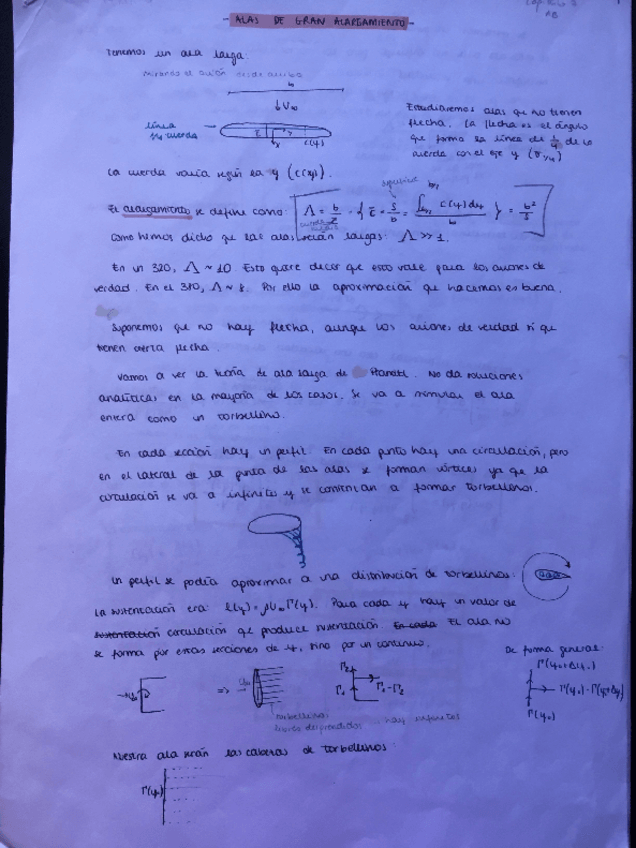 - ALAS DE GRAN ALARGAMIENTO -
Tenemos un ala larga:
mirando el avión desde arriba
b
↓U∞
línea
1/4 cuerda
c(y)
Estudiaremos alas que no tienen
flecha. La flecha es el ángulo
que forma la línea de 1/4 de la
cuerda con el eje y
La cuerda varía según la y (c(y)).
El alargamiento se define como: Λ = b/c̄ { c̄ = S/b = ∫ c(y)dy / b } = b²/S
superficie
cuerda
Como hemos dicho que las alas serán largas: Λ >> 1.
En un 320, Λ ~ 10. Esto quiere decir que esto vale para los aviones de
verdad. En el 380, Λ ~ 8. Por ello la aproximación que hacemos es buena.
Suponemos que no hay flecha, aunque los aviones de verdad sí que
tienen cierta flecha.
Vamos a ver la teoría de ala larga de Prandtl. No da soluciones
analíticas en la mayoría de los casos. Se va a simular el ala
entera como un torbellino.
En cada sección hay un perfil. En cada punto hay una circulación, pero
en el lateral de la punta de las alas se forman vórtices ya que la
circulación se va a infinito y se comienzan a formar torbellinos.
Un perfil se podía aproximar a una distribución de torbellinos:
La sustentación era: l(y) = ρU∞Γ(y). Para cada y hay un valor de
sustentación circulación que produce sustentación. En cada El ala no
se forma por estas secciones de y, sino por un continuo.
De forma general:
Γ(y₀+Δy₀)
Γ(y₀) - Γ(y₀+Δy)
Γ(y₀)
U∞
⇒
Γ₂
Γ₁
Γ₁-Γ₂
torbellinos
desprendidos
hay infinitos
Nuestra ala serán las cabezas de torbellinos:
Γ(y₀)